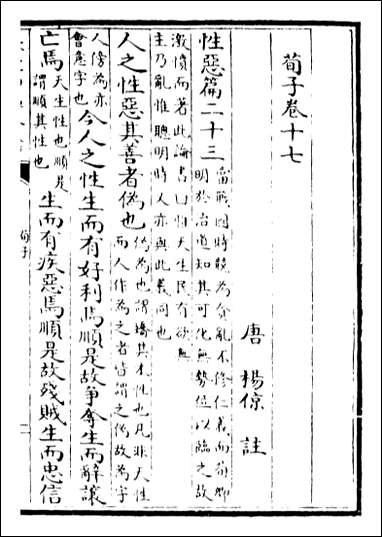 荀子卷十七
唐 楊倞 註
性惡篇二十三 當戰國時競為貪亂不修仁義而荀卿
明於治道知其可化無勢位以臨之故
激憤而著此論書曰惟天生民有欲無
主乃亂惟聰明時乂亦與此義同也
人之性惡其善者偽也 偽為也謂矯其本性也凡非天性
而人作為之者皆謂之偽故為字
人傍為亦
會意字也 今人之性生而有好利焉順是故爭奪生而辭讓
亡焉 天生性也順是
謂順其性也 生而有疾惡焉順是故殘賊生而忠信
荀子